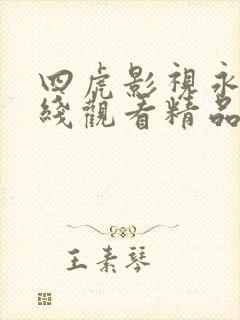 四虎影視永
綫觀看精品
王素琴